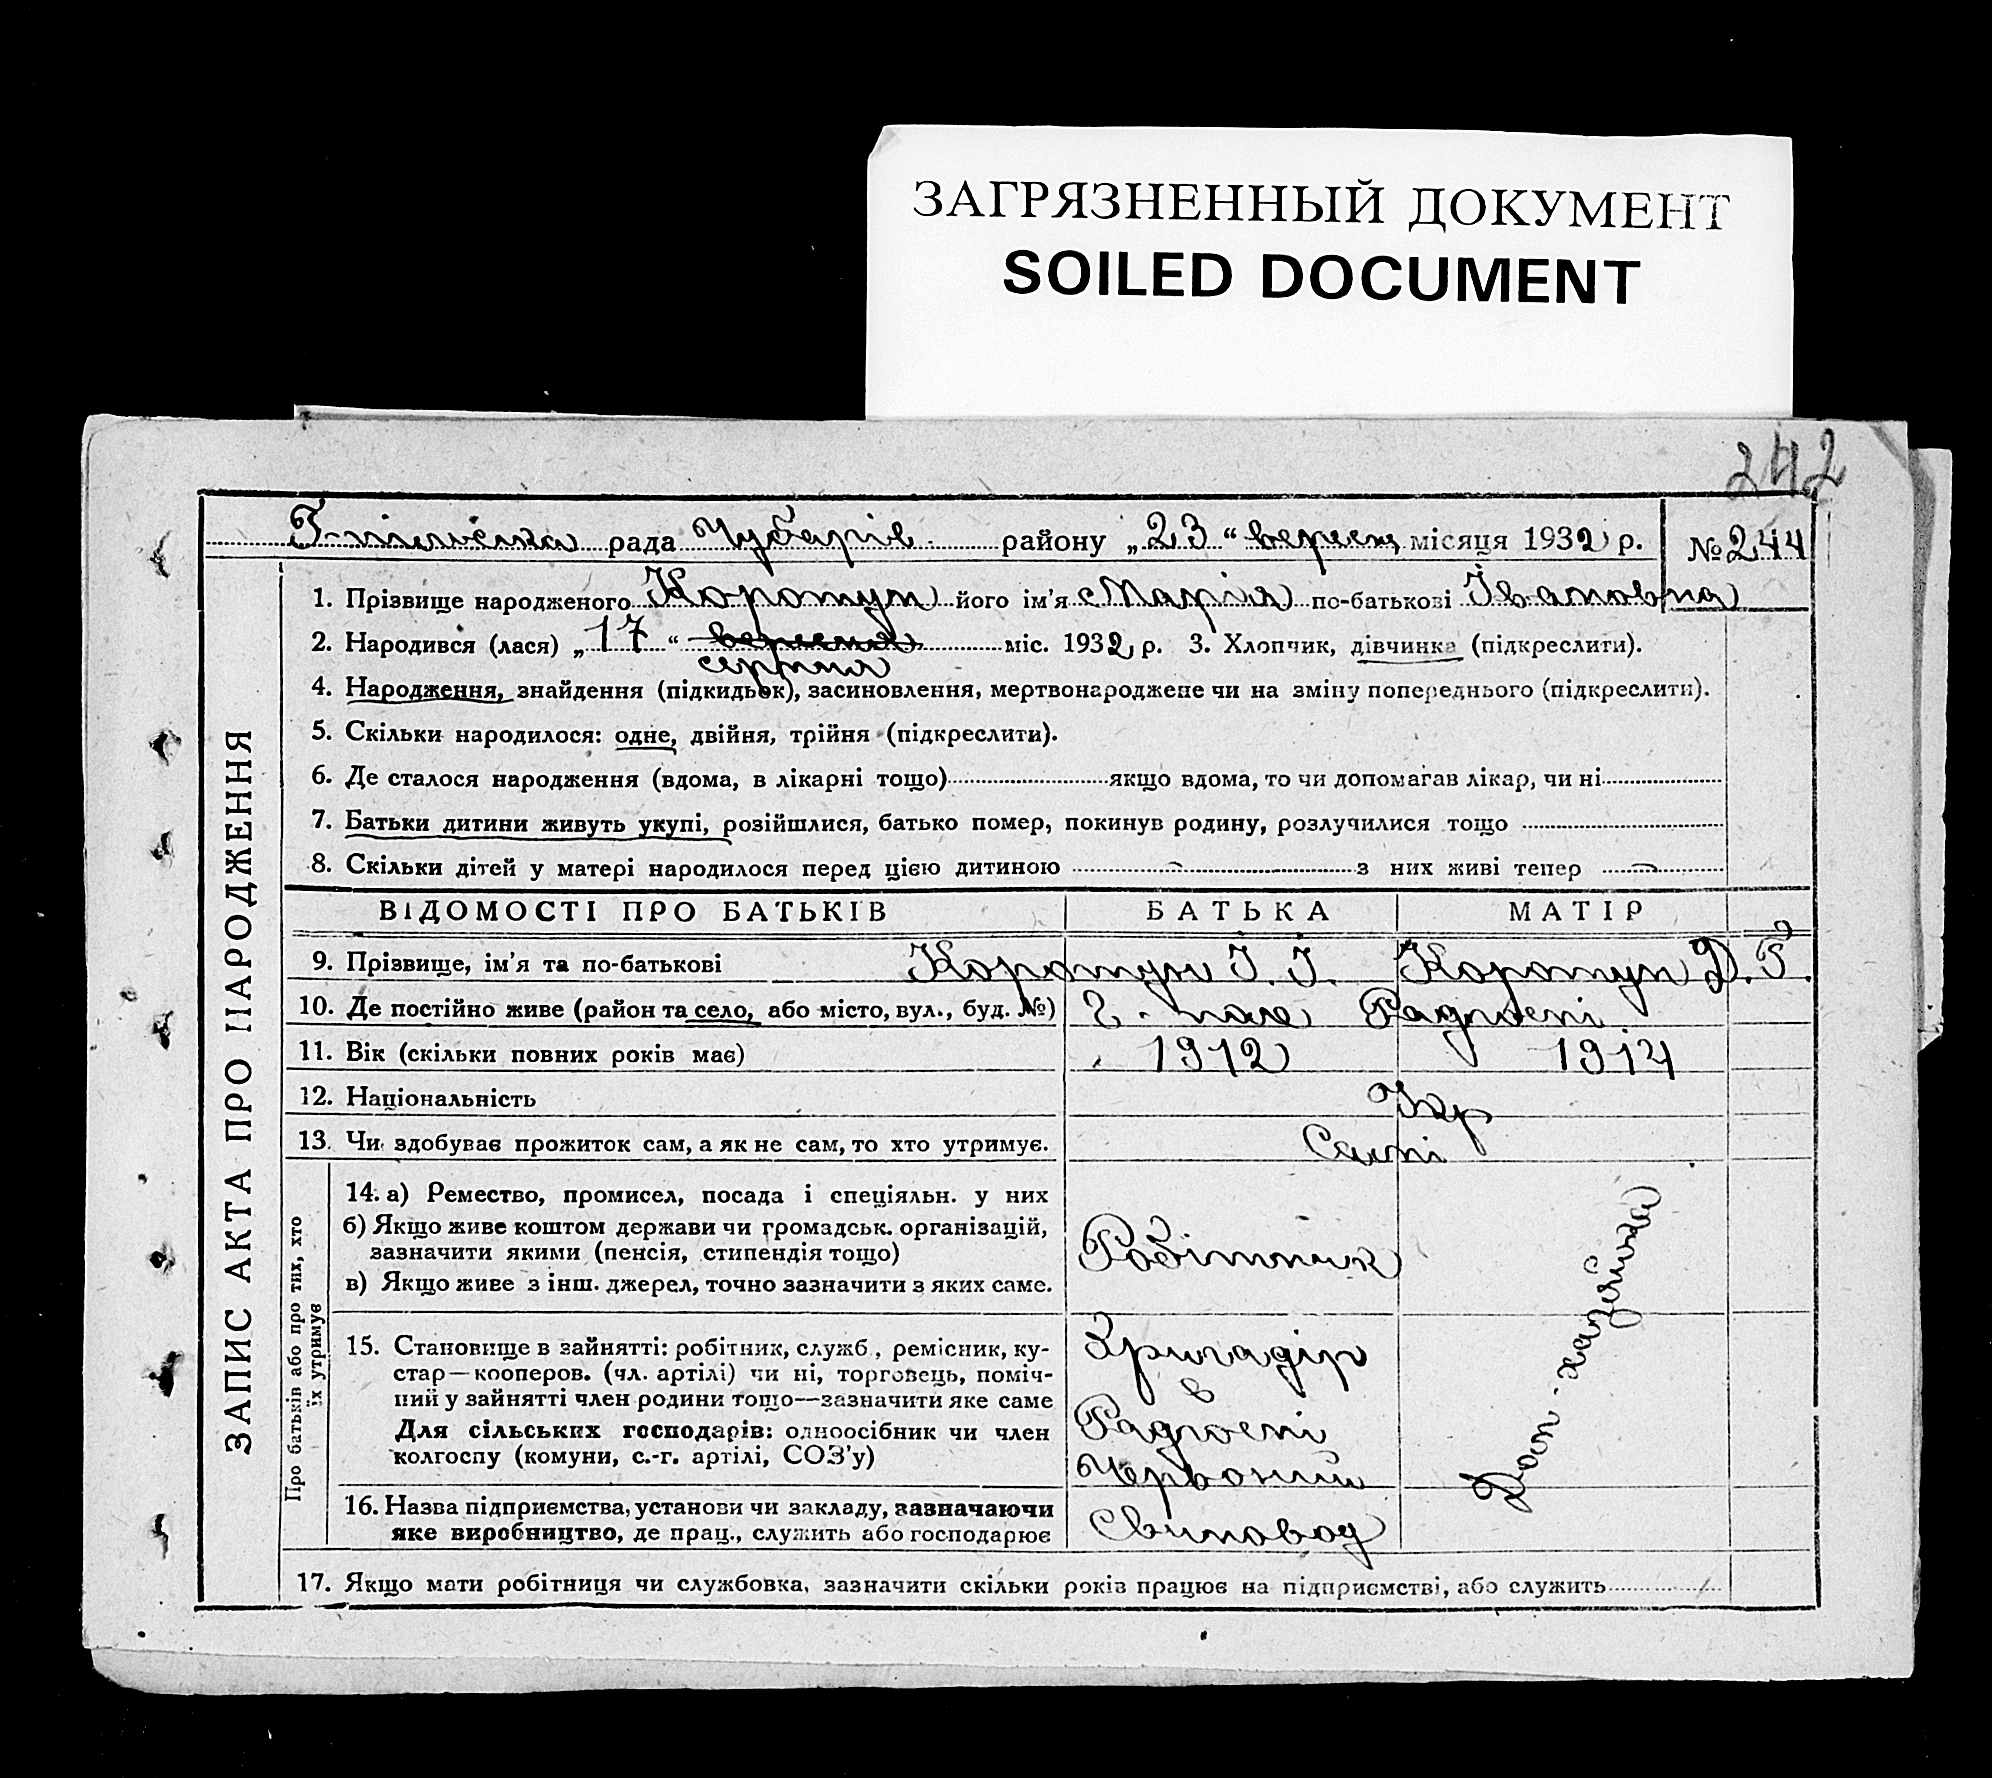 ЗАГРЯЗНЕННЫЙ ДОКУМЕНТ
SOILED DOCUMENT
242
Г-пільська рада Чубарів району „23“ вересн місяця 1932 р. № 244
ЗАПИС АКТА ПРО НАРОДЖЕННЯ
1. Прізвище народженого Коротун його ім'я Марія по-батькові Івановна
2. Народився (лася) „17“ вересня міс. 1932 р. 3. Хлопчик, дівчинка (підкреслити).
серпня
4. Народження, знайдення (підкидьок), засиновлення, мертвонароджене чи на зміну попереднього (підкреслити).
5. Скільки народилося: одне, двійня, трійня (підкреслити).
6. Де сталося народження (вдома, в лікарні тощо) якщо вдома, то чи допомагав лікар, чи ні
7. Батьки дитини живуть укупі, розійшлися, батько помер, покинув родину, розлучилися тощо
8. Скільки дітей у матері народилося перед цією дитиною — з них живі тепер —
ВІДОМОСТІ ПРО БАТЬКІВ БАТЬКА МАТІР
9. Прізвище, ім'я та по-батькові Коротун І. І. Коротун Д. Г.
10. Де постійно живе (район та село, або місто, вул., буд. №) Г. поле Радгоспі
11. Вік (скільки повних років має) 1912 1914
12. Національність Укр
13. Чи здобуває прожиток сам, а як не сам, то хто утримує. Самі
Про батьків або про тих, хто
їх утримує
14. а) Ремество, промисел, посада і спеціяльн. у них
б) Якщо живе коштом держави чи громадськ. організацій,
зазначити якими (пенсія, стипендія тощо)
в) Якщо живе з інш. джерел, точно зазначити з яких саме.
Робітник
Дом-хазяйка
15. Становище в зайнятті: робітник, служб., ремісник, ку-
стар—кооперов. (чл. артілі) чи ні, торговець, поміч-
ний у зайнятті член родини тощо—зазначити яке саме
Для сільських господарів: одноосібник чи член
колгоспу (комуни, с.-г. артілі, СОЗ'у)
Бригадір
в
Радгоспі
Червоний
16. Назва підприємства, установи чи закладу, зазначаючи
яке виробництво, де прац., служить або господарює
Свиновод
17. Якщо мати робітниця чи службовка, зазначити скільки років працює на підприємстві, або служить